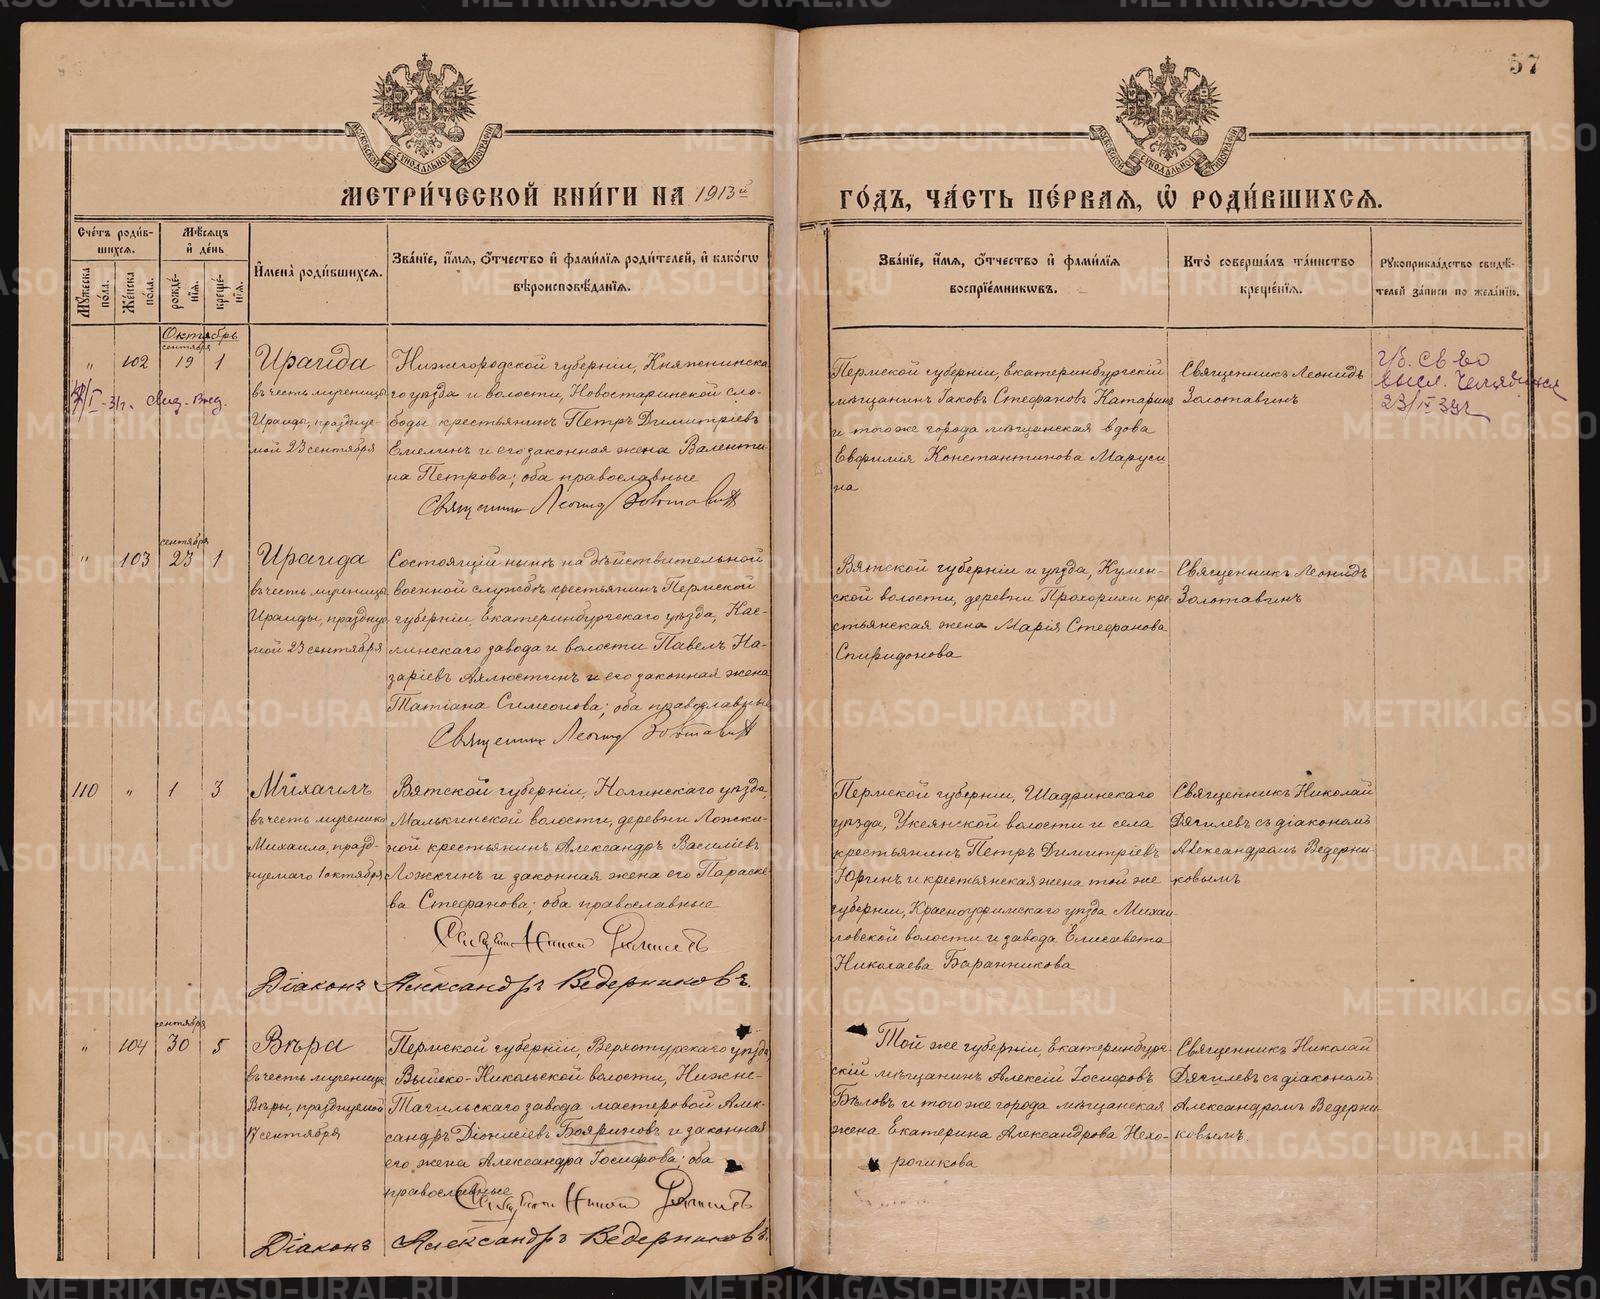 57
МОСКОВСКОЙ СУНОДАЛЬНОЙ ТИПОГРАФІИ
МОСКОВСКОЙ СУНОДАЛЬНОЙ ТИПОГРАФІИ
МЕТРИ́ЧЕСКОЙ КНИ́ГИ НА 1913й
ГО́ДЪ, ЧА́СТЬ ПЕ́РВАѦ, Ѡ҆ РОДИ́ВШИХСѦ.
Сче́тъ роди́в-
шихсѧ.
Мꙋжеска по́ла.
Же́нска по́ла.
Мѣ́сѧцъ
и҆ де́нь
рожде́-
нїѧ.
креще́-
нїѧ.
И҆мена̀ роди́вшихсѧ.
Зва́нїе, и҆́мѧ, ѻ҆́тчество и҆ фами́лїѧ роди́телей, и҆ како́гѡ
вѣроисповѣ́данїѧ.
Зва́нїе, и҆́мѧ, ѻ҆́тчество и҆ фами́лїѧ
воспрїе́мникѡвъ.
Кто̀ соверша́лъ та́инство
креще́нїѧ.
Рꙋкоприкла́дство свидѣ́-
телей за́писи по жела́нїю.
Октябрь
" 102 сентября 19 1
Ираида
въ честь мученицы
Ираиды, празднуе-
мой 23 сентября
Нижегородской губерніи, Княгининска
го уѣзда и волости, Новостаринской сло-
боды крестьянинъ Петръ Димитріевъ
Емелинъ и его законная жена Валенти-
на Петрова; оба православные
Священникъ Леонидъ Золотавинъ
Пермской губерніи, екатеринбургскій
мѣщанинъ Іаковъ Стефановъ Катарин
и тогоже города мѣщанская вдова
Евфилія Константинова Маруси
на
Священникъ Леонидъ
Золотавинъ
св-во
высл. Челябинск
" 103 сентября 23 1
Ираида
въ честь мученицы
Ираиды, праздну
мой 23 сентября
Состоящій нынѣ на дѣйствительной
военной службѣ крестьянинъ Пермской
губерніи, Екатеринбургскаго уѣзда, Кас-
линскаго завода и волости Павелъ На-
заріевъ Ахлюстинъ и его законная жена
Татіана Симеонова; оба православные
Священникъ Леонидъ Золотавинъ
Вятской губерніи и уѣзда, Кумен-
ской волости, деревни Прохорихи кре-
стьянская жена Марія Стефанова
Спиридонова
Священникъ Леонидъ
Золотавинъ
110 " 1 3
Михаилъ
въ честь мученика
Михаила, празд-
нуемаго 1 октября
Вятской губерніи, Нолинскаго уѣзда,
Малькинской волости, деревни Ложки-
ной крестьянинъ Александръ Василіевъ
Ложкинъ и законная жена его Параске-
ва Стефанова; оба православные
Священникъ Николай Дягилевъ
Діаконъ Александръ Ведерниковъ.
Пермской губерніи, Шадринскаго
уѣзда, Уксянской волости и села
крестьянинъ Петръ Димитріевъ
Юринъ и крестьянская жена той же
губерніи, Красноуфимскаго уѣзда Михаи-
ловской волости и завода Елисавета
Николаева Баранникова
Священникъ Николай
Дягилевъ съ діакономъ
Александромъ Ведерни-
ковымъ
" 104 сентября 30 5
Вѣра
въ честь мученицы
Вѣры, празднуемой
17 сентября
Пермской губерніи, Верхотурскаго уѣзда
Выйско-Никольской волости, Нижне-
Тагильскаго завода мастеровой Алек-
сандръ Діонисіевъ Бояриновъ и законная
его жена Александра Іосифова; оба
православные
Священникъ Николай Дягилевъ
Діаконъ Александръ Ведерниковъ.
Той же губерніи, Екатеринбург-
скій мѣщанинъ Алексій Іосифовъ
Бѣловъ и того же города мѣщанская
жена Екатерина Александрова Нехо-
рошкова
Священникъ Николай
Дягилевъ съ діакономъ
Александромъ Ведерни-
ковымъ.